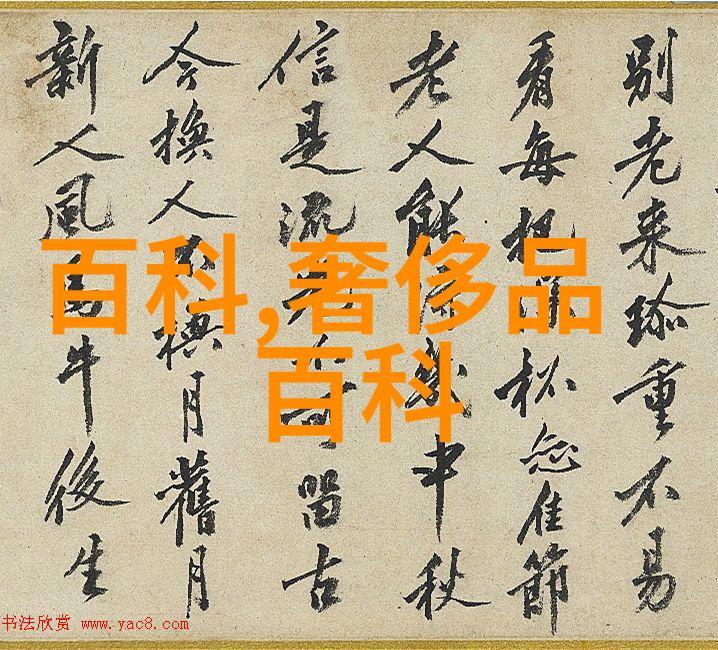 別老来珎重不易
看每佳節
老人能得幾中秋
信是流光不可留古
今換人不換月舊月
新人風馬牛後生
百科,奢侈品
百科
书法欣赏 www.yac8.com